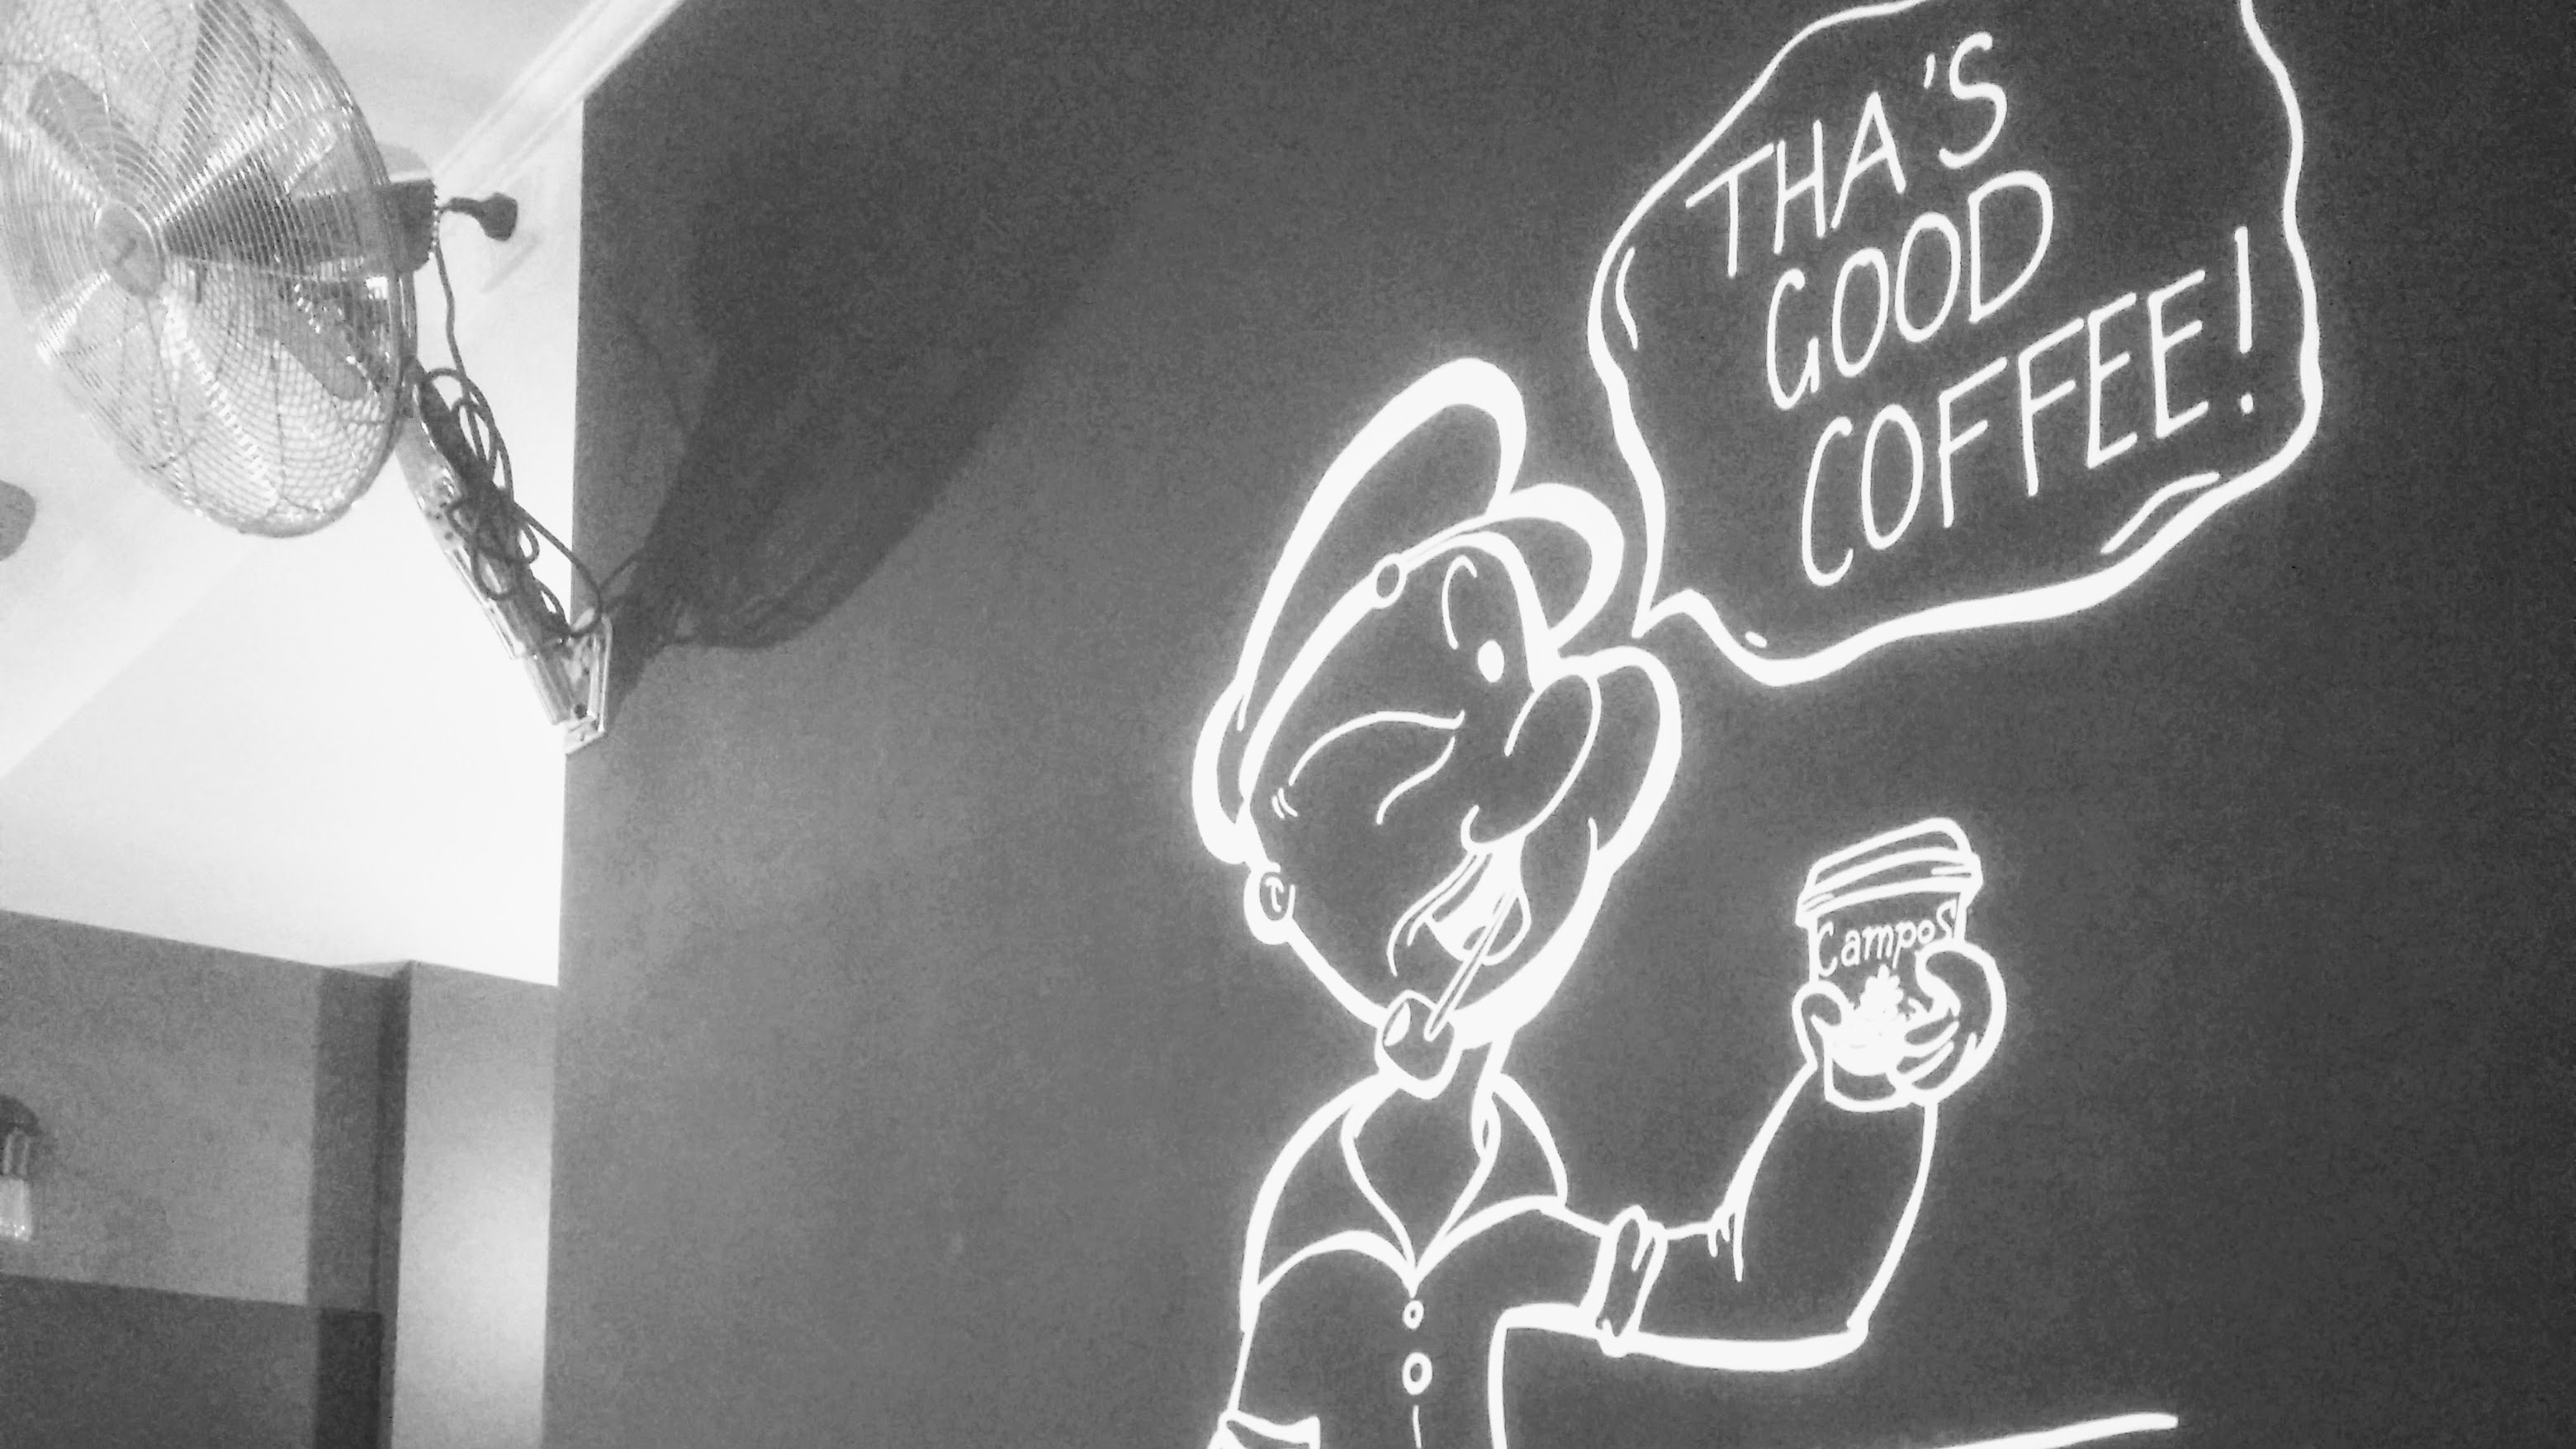 THA'S
GOOD
COFFEE!
Campos